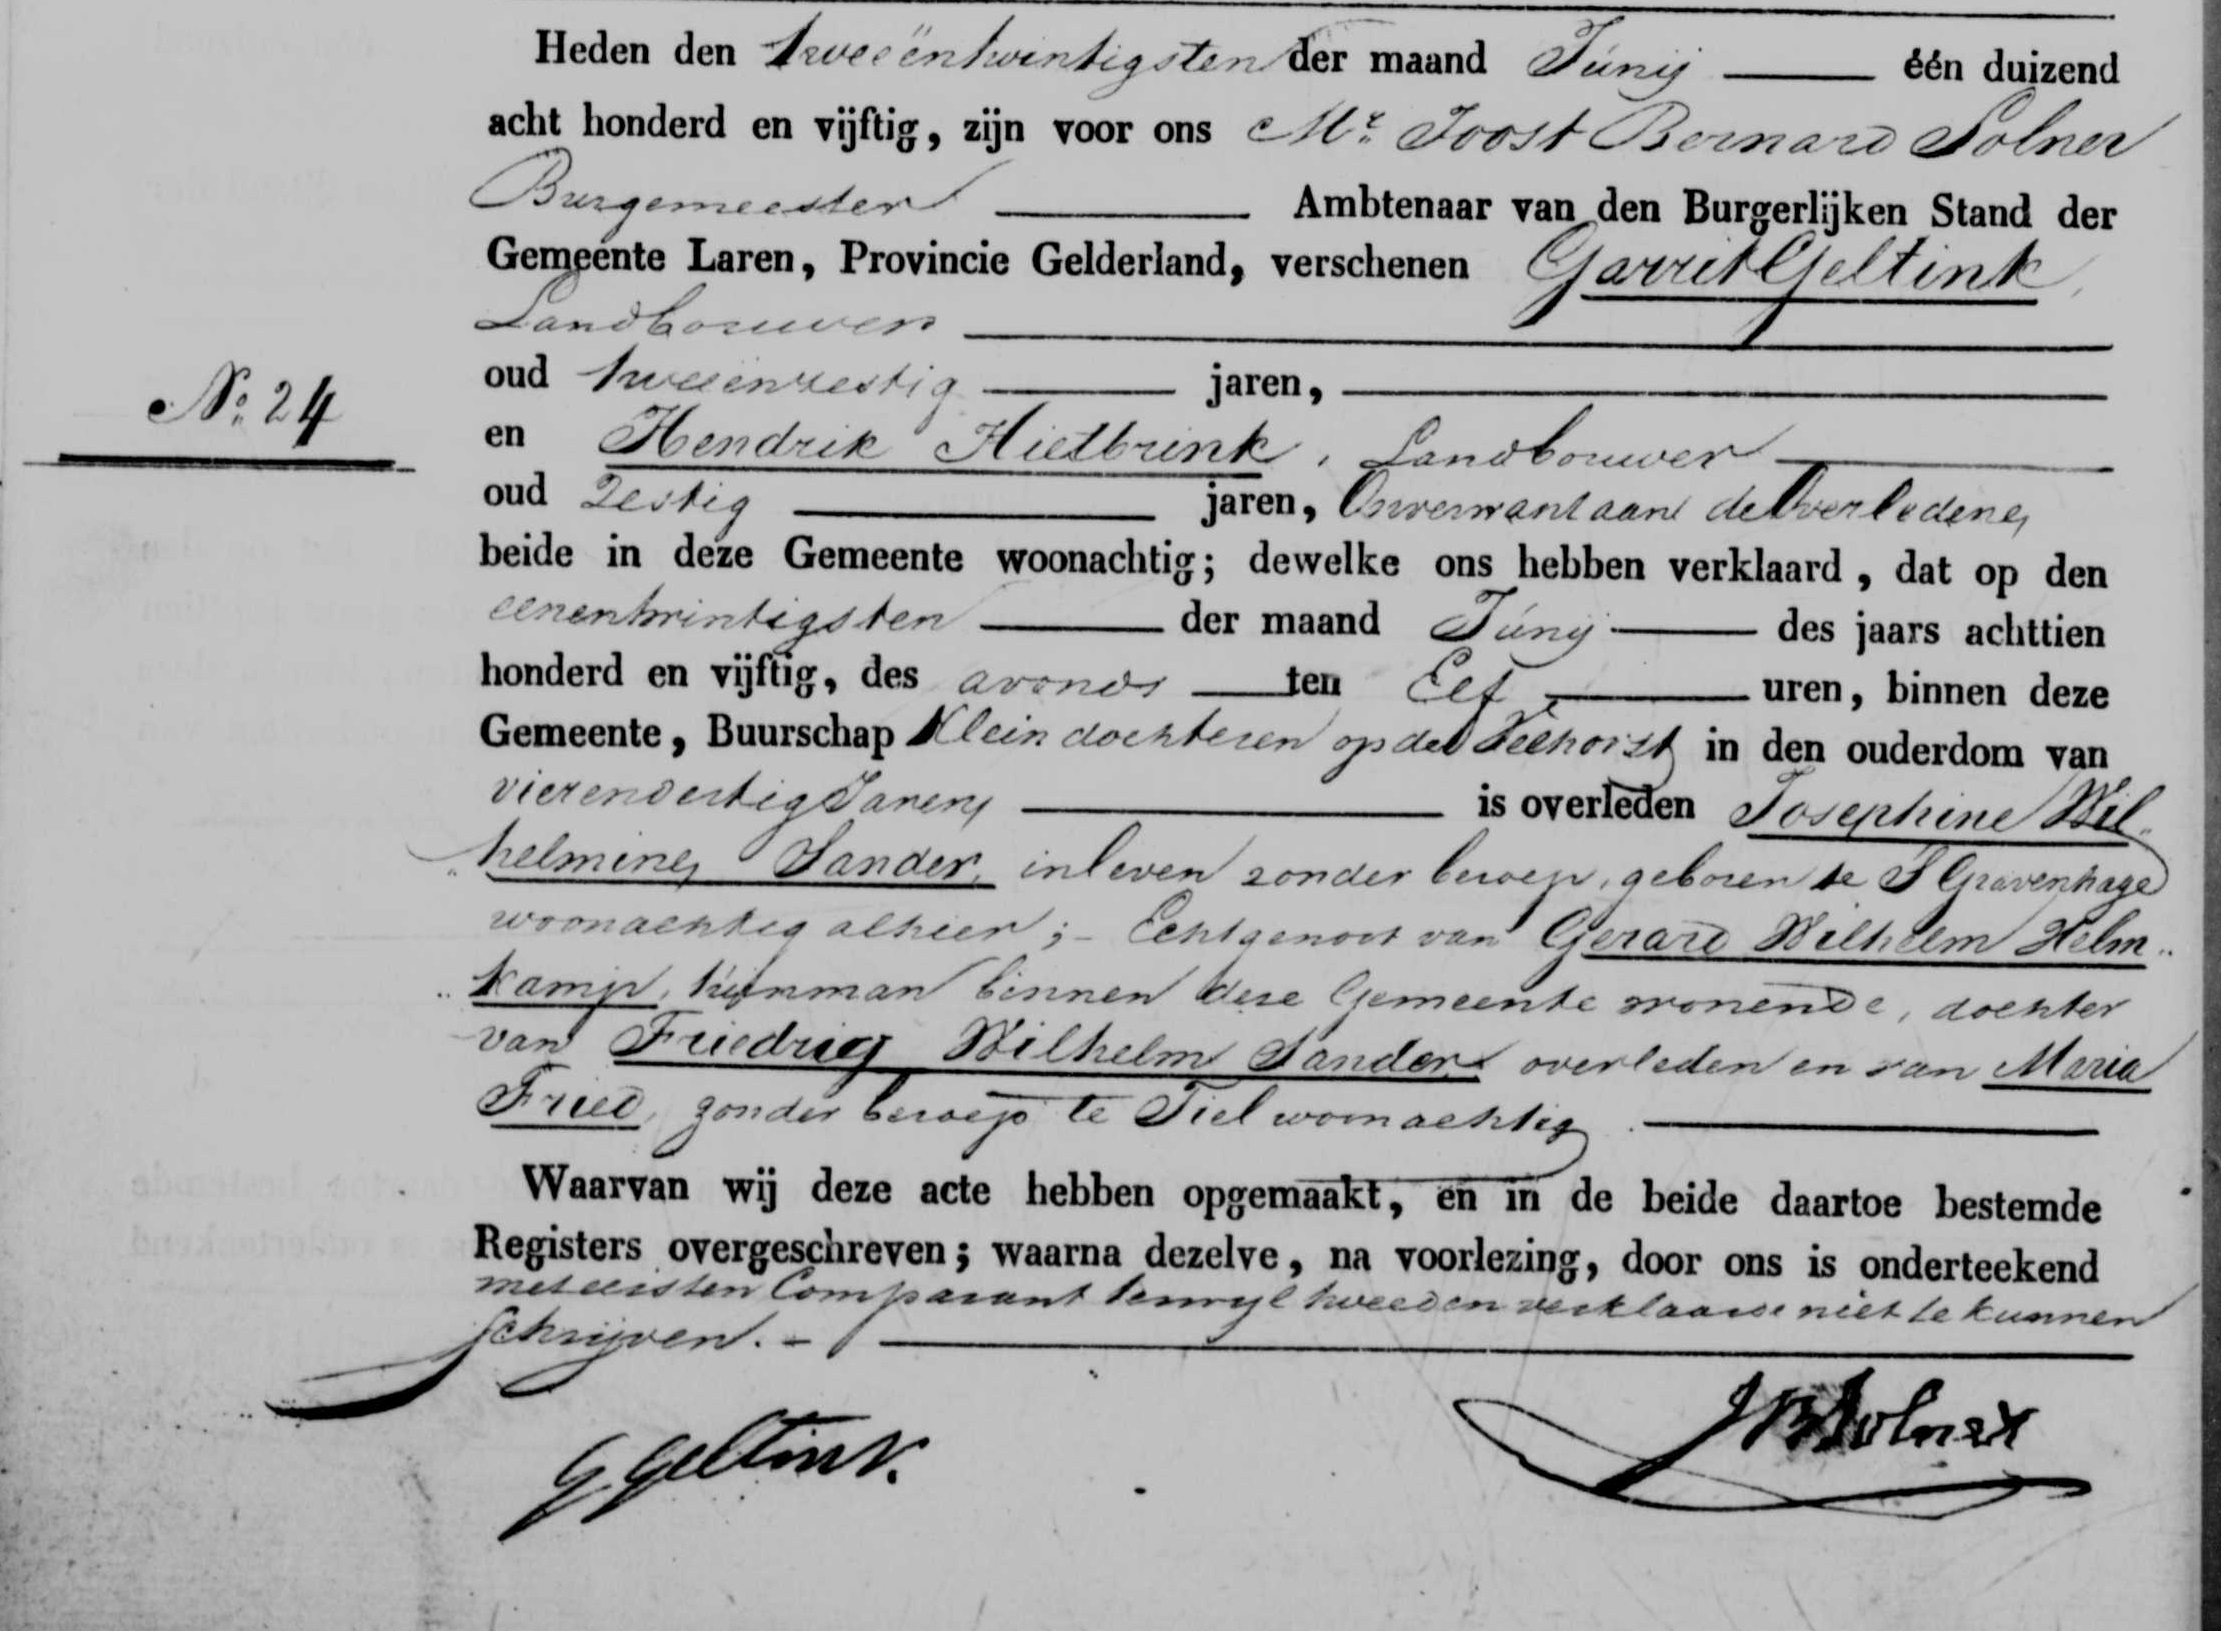 Heden den tweeëntwintigsten der maand Júnij één duizend
acht honderd en vijftig, zijn voor ons Mr. Joost Bernard Solner
Burgemeester Ambtenaar van den Burgerlijken Stand der
Gemeente Laren, Provincie Gelderland, verschenen Garrit Geltink,
Landbouwer
oud tweeenzestig jaren,
No. 24
en Hendrik Hietbrink, Landbouwer
oud Zestig jaren, Onverwant aan de Overledene,
beide in deze Gemeente woonachtig; dewelke ons hebben verklaard, dat op den
eenentwintigsten der maand Júnij des jaars achttien
honderd en vijftig, des avonds ten Elf uren, binnen deze
Gemeente, Buurschap Klein dochteren op de in den ouderdom van
vierendertig Jaren, is overleden Josephine Wil„
„helmine, Sander, in leven zonder beroep, geboren te S Gravenhage
woonachtig alhier; – Echtgenoot van Gerard Wilhelm Helm„
„kamp, binnen deze Gemeente wonende, dochter
van Friedrig Wilhelm Sander overleden en van Maria
Fried, zonder beroep te Tiel woonachtig.
Waarvan wij deze acte hebben opgemaakt, en in de beide daartoe bestemde
Registers overgeschreven; waarna dezelve, na voorlezing, door ons is onderteekend
met eersten Comparant terwyl tweeden verklaarde niet te kunnen
schrijven. –
G Geltink.
JBSolner